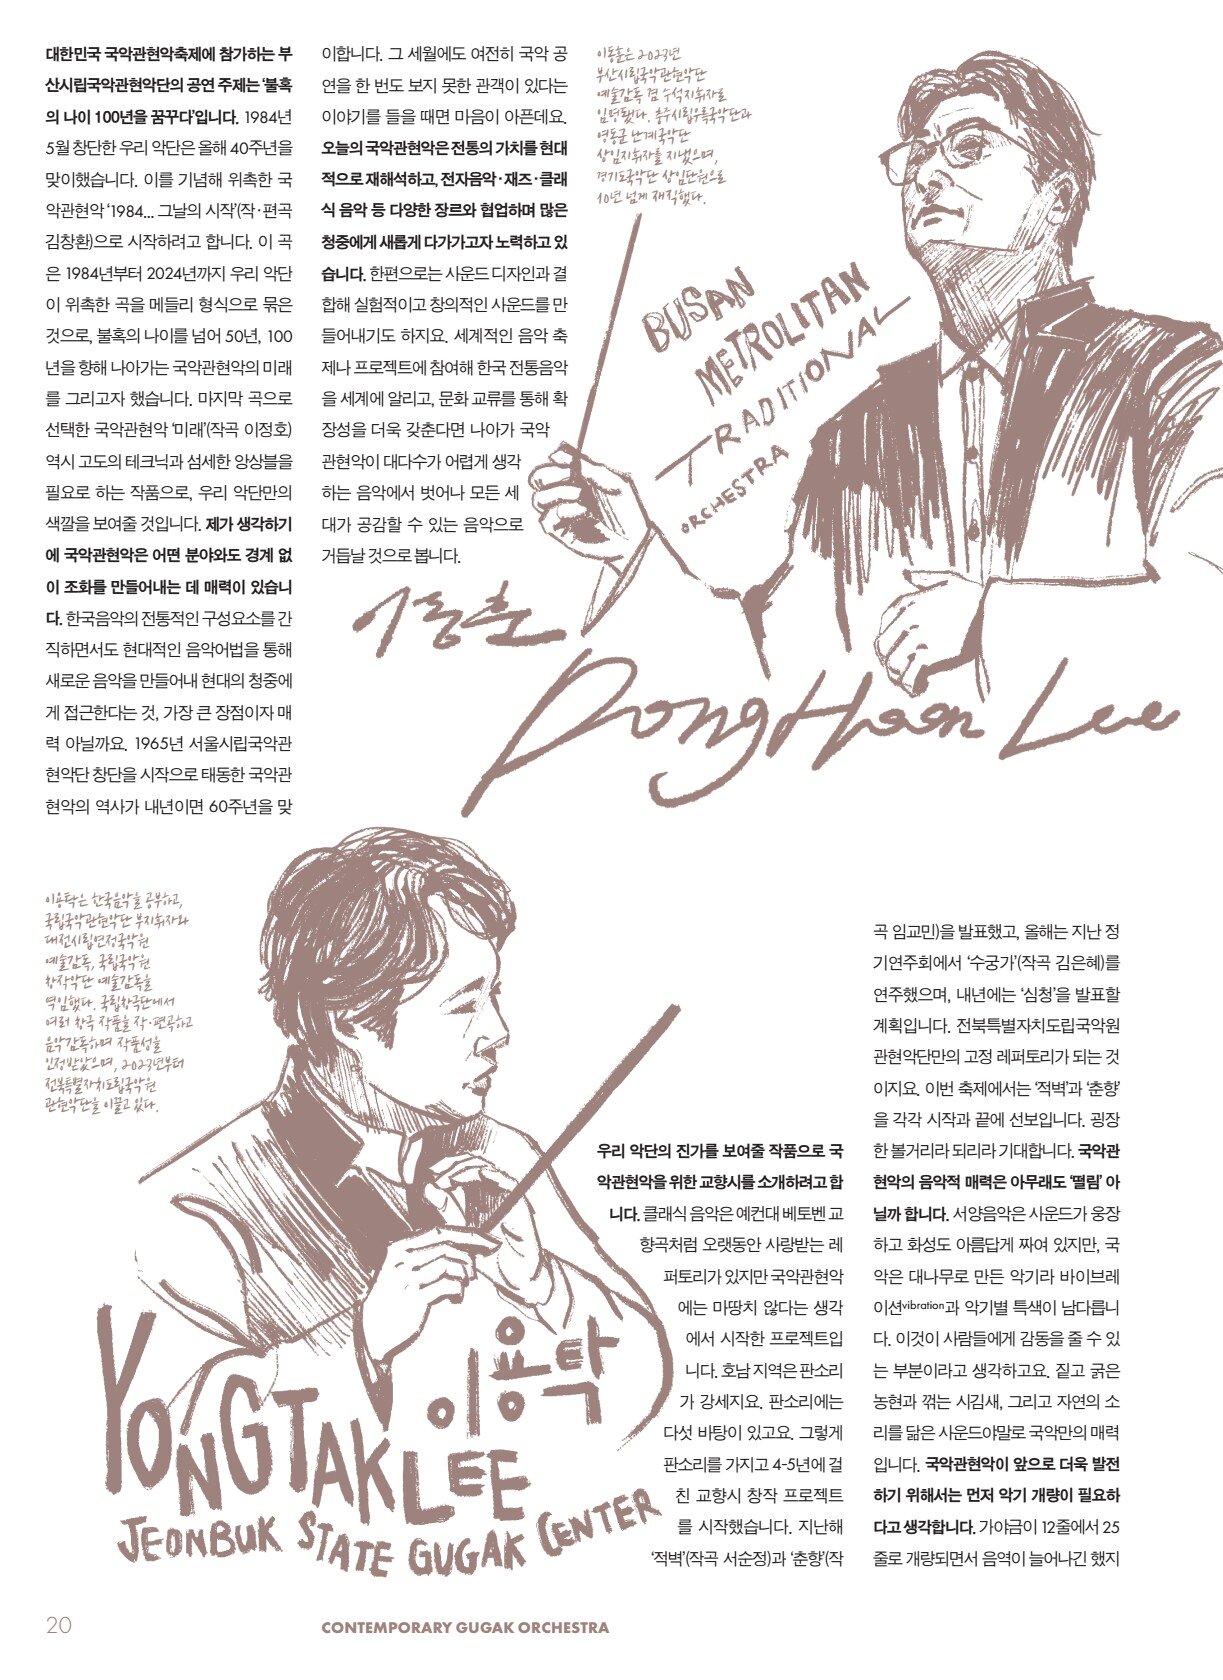 대한민국 국악관현악축제에 참가하는 부
산시립국악관현악단의 공연 주제는 ‘불혹
의 나이 100년을 꿈꾸다’입니다. 1984년
5월 창단한 우리 악단은 올해 40주년을
맞이했습니다. 이를 기념해 위촉한 국
악관현악 ‘1984... 그날의 시작’(작·편곡
김창환)으로 시작하려고 합니다. 이 곡
은 1984년부터 2024년까지 우리 악단
이 위촉한 곡을 메들리 형식으로 묶은
것으로, 불혹의 나이를 넘어 50년, 100
년을 향해 나아가는 국악관현악의 미래
를 그리고자 했습니다. 마지막 곡으로
선택한 국악관현악 ‘미래’(작곡 이정호)
역시 고도의 테크닉과 섬세한 앙상블을
필요로 하는 작품으로, 우리 악단만의
색깔을 보여줄 것입니다. 제가 생각하기
에 국악관현악은 어떤 분야와도 경계 없
이 조화를 만들어내는 데 매력이 있습니
다. 한국음악의 전통적인 구성요소를 간
직하면서도 현대적인 음악어법을 통해
새로운 음악을 만들어내 현대의 청중에
게 접근한다는 것, 가장 큰 장점이자 매
력 아닐까요. 1965년 서울시립국악관
현악단 창단을 시작으로 태동한 국악관
현악의 역사가 내년이면 60주년을 맞
이합니다. 그 세월에도 여전히 국악 공
연을 한 번도 보지 못한 관객이 있다는
이야기를 들을 때면 마음이 아픈데요.
오늘의 국악관현악은 전통의 가치를 현대
적으로 재해석하고, 전자음악·재즈·클래
식 음악 등 다양한 장르와 협업하며 많은
청중에게 새롭게 다가가고자 노력하고 있
습니다. 한편으로는 사운드 디자인과 결
합해 실험적이고 창의적인 사운드를 만
들어내기도 하지요. 세계적인 음악 축
제나 프로젝트에 참여해 한국 전통음악
을 세계에 알리고, 문화 교류를 통해 확
장성을 더욱 갖춘다면 나아가 국악
관현악이 대다수가 어렵게 생각
하는 음악에서 벗어나 모든 세
대가 공감할 수 있는 음악으로
거듭날 것으로 봅니다.
이동훈은 2023년
부산시립국악관현악단
예술감독 겸 수석지휘자로
임명됐다. 충주시립우륵국악단과
영동군 난계국악단
상임지휘자를 지냈으며,
경기도국악단 상임단원으로
10년 넘게 재직했다.
BUSAN
METROLITAN
TRADITIONAL
ORCHESTRA
이동훈
DongHoon Lee
이용탁은 한국음악을 공부하고,
국립국악관현악단 부지휘자와
대전시립연정국악원
예술감독, 국립국악원
창작악단 예술감독을
역임했다. 국립창극단에서
여러 창극 작품을 작·편곡하고
음악감독하며 작품성을
인정받았으며, 2023년부터
전북특별자치도립국악원
관현악단을 이끌고 있다.
이용탁
YONGTAK LEE
JEONBUK STATE GUGAK CENTER
우리 악단의 진가를 보여줄 작품으로 국
악관현악을 위한 교향시를 소개하려고 합
니다. 클래식 음악은 예컨대 베토벤 교
향곡처럼 오랫동안 사랑받는 레
퍼토리가 있지만 국악관현악
에는 마땅치 않다는 생각
에서 시작한 프로젝트입
니다. 호남 지역은 판소리
가 강세지요. 판소리에는
다섯 바탕이 있고요. 그렇게
판소리를 가지고 4-5년에 걸
친 교향시 창작 프로젝트
를 시작했습니다. 지난해
‘적벽’(작곡 서순정)과 ‘춘향’(작
곡 임교민)을 발표했고, 올해는 지난 정
기연주회에서 ‘수궁가’(작곡 김은혜)를
연주했으며, 내년에는 ‘심청’을 발표할
계획입니다. 전북특별자치도립국악원
관현악단만의 고정 레퍼토리가 되는 것
이지요. 이번 축제에서는 ‘적벽’과 ‘춘향’
을 각각 시작과 끝에 선보입니다. 굉장
한 볼거리라 되리라 기대합니다. 국악관
현악의 음악적 매력은 아무래도 ‘떨림’ 아
닐까 합니다. 서양음악은 사운드가 웅장
하고 화성도 아름답게 짜여 있지만, 국
악은 대나무로 만든 악기라 바이브레
이션vibration과 악기별 특색이 남다릅니
다. 이것이 사람들에게 감동을 줄 수 있
는 부분이라고 생각하고요. 짙고 굵은
농현과 꺾는 시김새, 그리고 자연의 소
리를 닮은 사운드야말로 국악만의 매력
입니다. 국악관현악이 앞으로 더욱 발전
하기 위해서는 먼저 악기 개량이 필요하
다고 생각합니다. 가야금이 12줄에서 25
줄로 개량되면서 음역이 늘어나긴 했지
20
CONTEMPORARY GUGAK ORCHESTRA